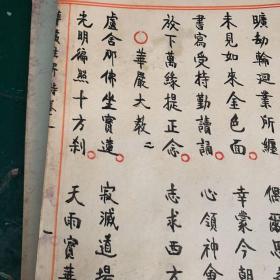 曠劫輪迴業所纏
偶爾
未見如來金色面
幸蒙今朝
書寫受持勤讀誦
心領神會
放下萬緣提正念
志求西方
華嚴大教 二
盧舍那佛坐寶蓮
寂滅道場
光明徧照十方刹
天雨寶華
一